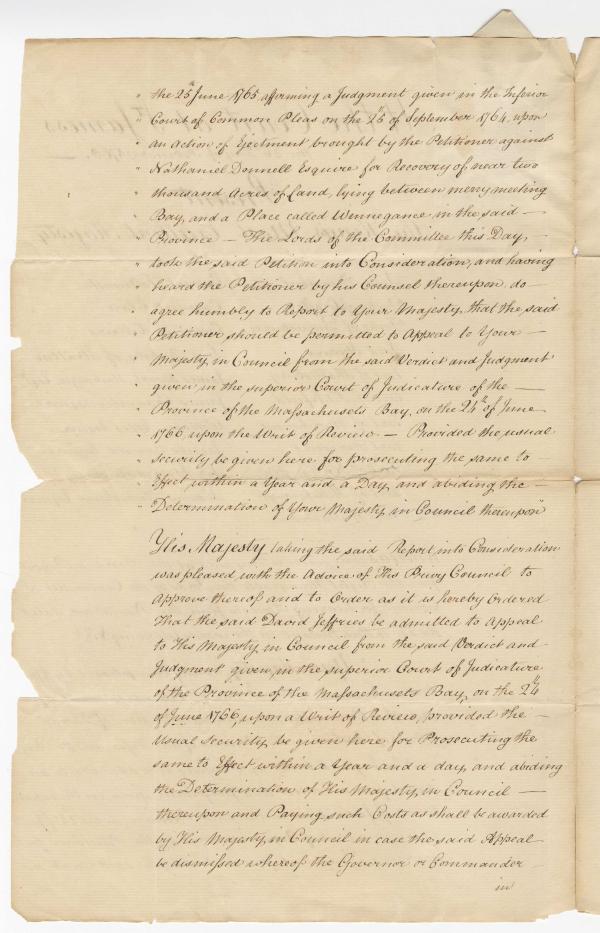 " the 25th June 1765, affirming a Judgment given in the Inferior
" Court of Common Pleas on the 25th of September 1764, upon
" an Action of Ejectment brought by the Petitioner against
" Nathaniel Donnell Esquire for Recovery of near two
" thousand Acres of Land, lying between merry meeting
" Bay, and a Place called Winnegance in the said —
" Province — The Lords of the Committee this Day,
" took the said Petition into Consideration, and having
" heard the Petitioner by his Counsel thereupon, do —
" agree humbly to Report to Your Majesty, that the said
" Petitioner should be permitted to Appeal to Your —
" Majesty in Council from the said Verdict and Judgment
" given, in the superior Court of Judicature of the —
" Province of the Massachusets Bay, on the 24th of June
" 1766, upon the Writ of Review — Provided the usual
" security be given here for prosecuting the same to
" Effect within a Year and a Day, and abiding the —
" Determination of Your Majesty in Council thereupon"
His Majesty taking the said Report into Consideration
was pleased with the Advice of His Privy Council to
Approve thereof and to Order as it is hereby Ordered
That the said David Jeffries be admitted to Appeal
to His Majesty in Council from the said Verdict and
Judgment given, in the superior Court of Judicature
of the Province of the Massachusets Bay, on the 24th
of June 1766, upon a Writ of Review, provided the —
Usual Security, be given here for Prosecuting the
same to Effect within a Year and a day, and abiding
the Determination of His Majesty, in Council —
thereupon and Paying such Costs as shall be awarded
by His Majesty, in Council in case the said Appeal
be dismissed whereof the Governor or Commander
in